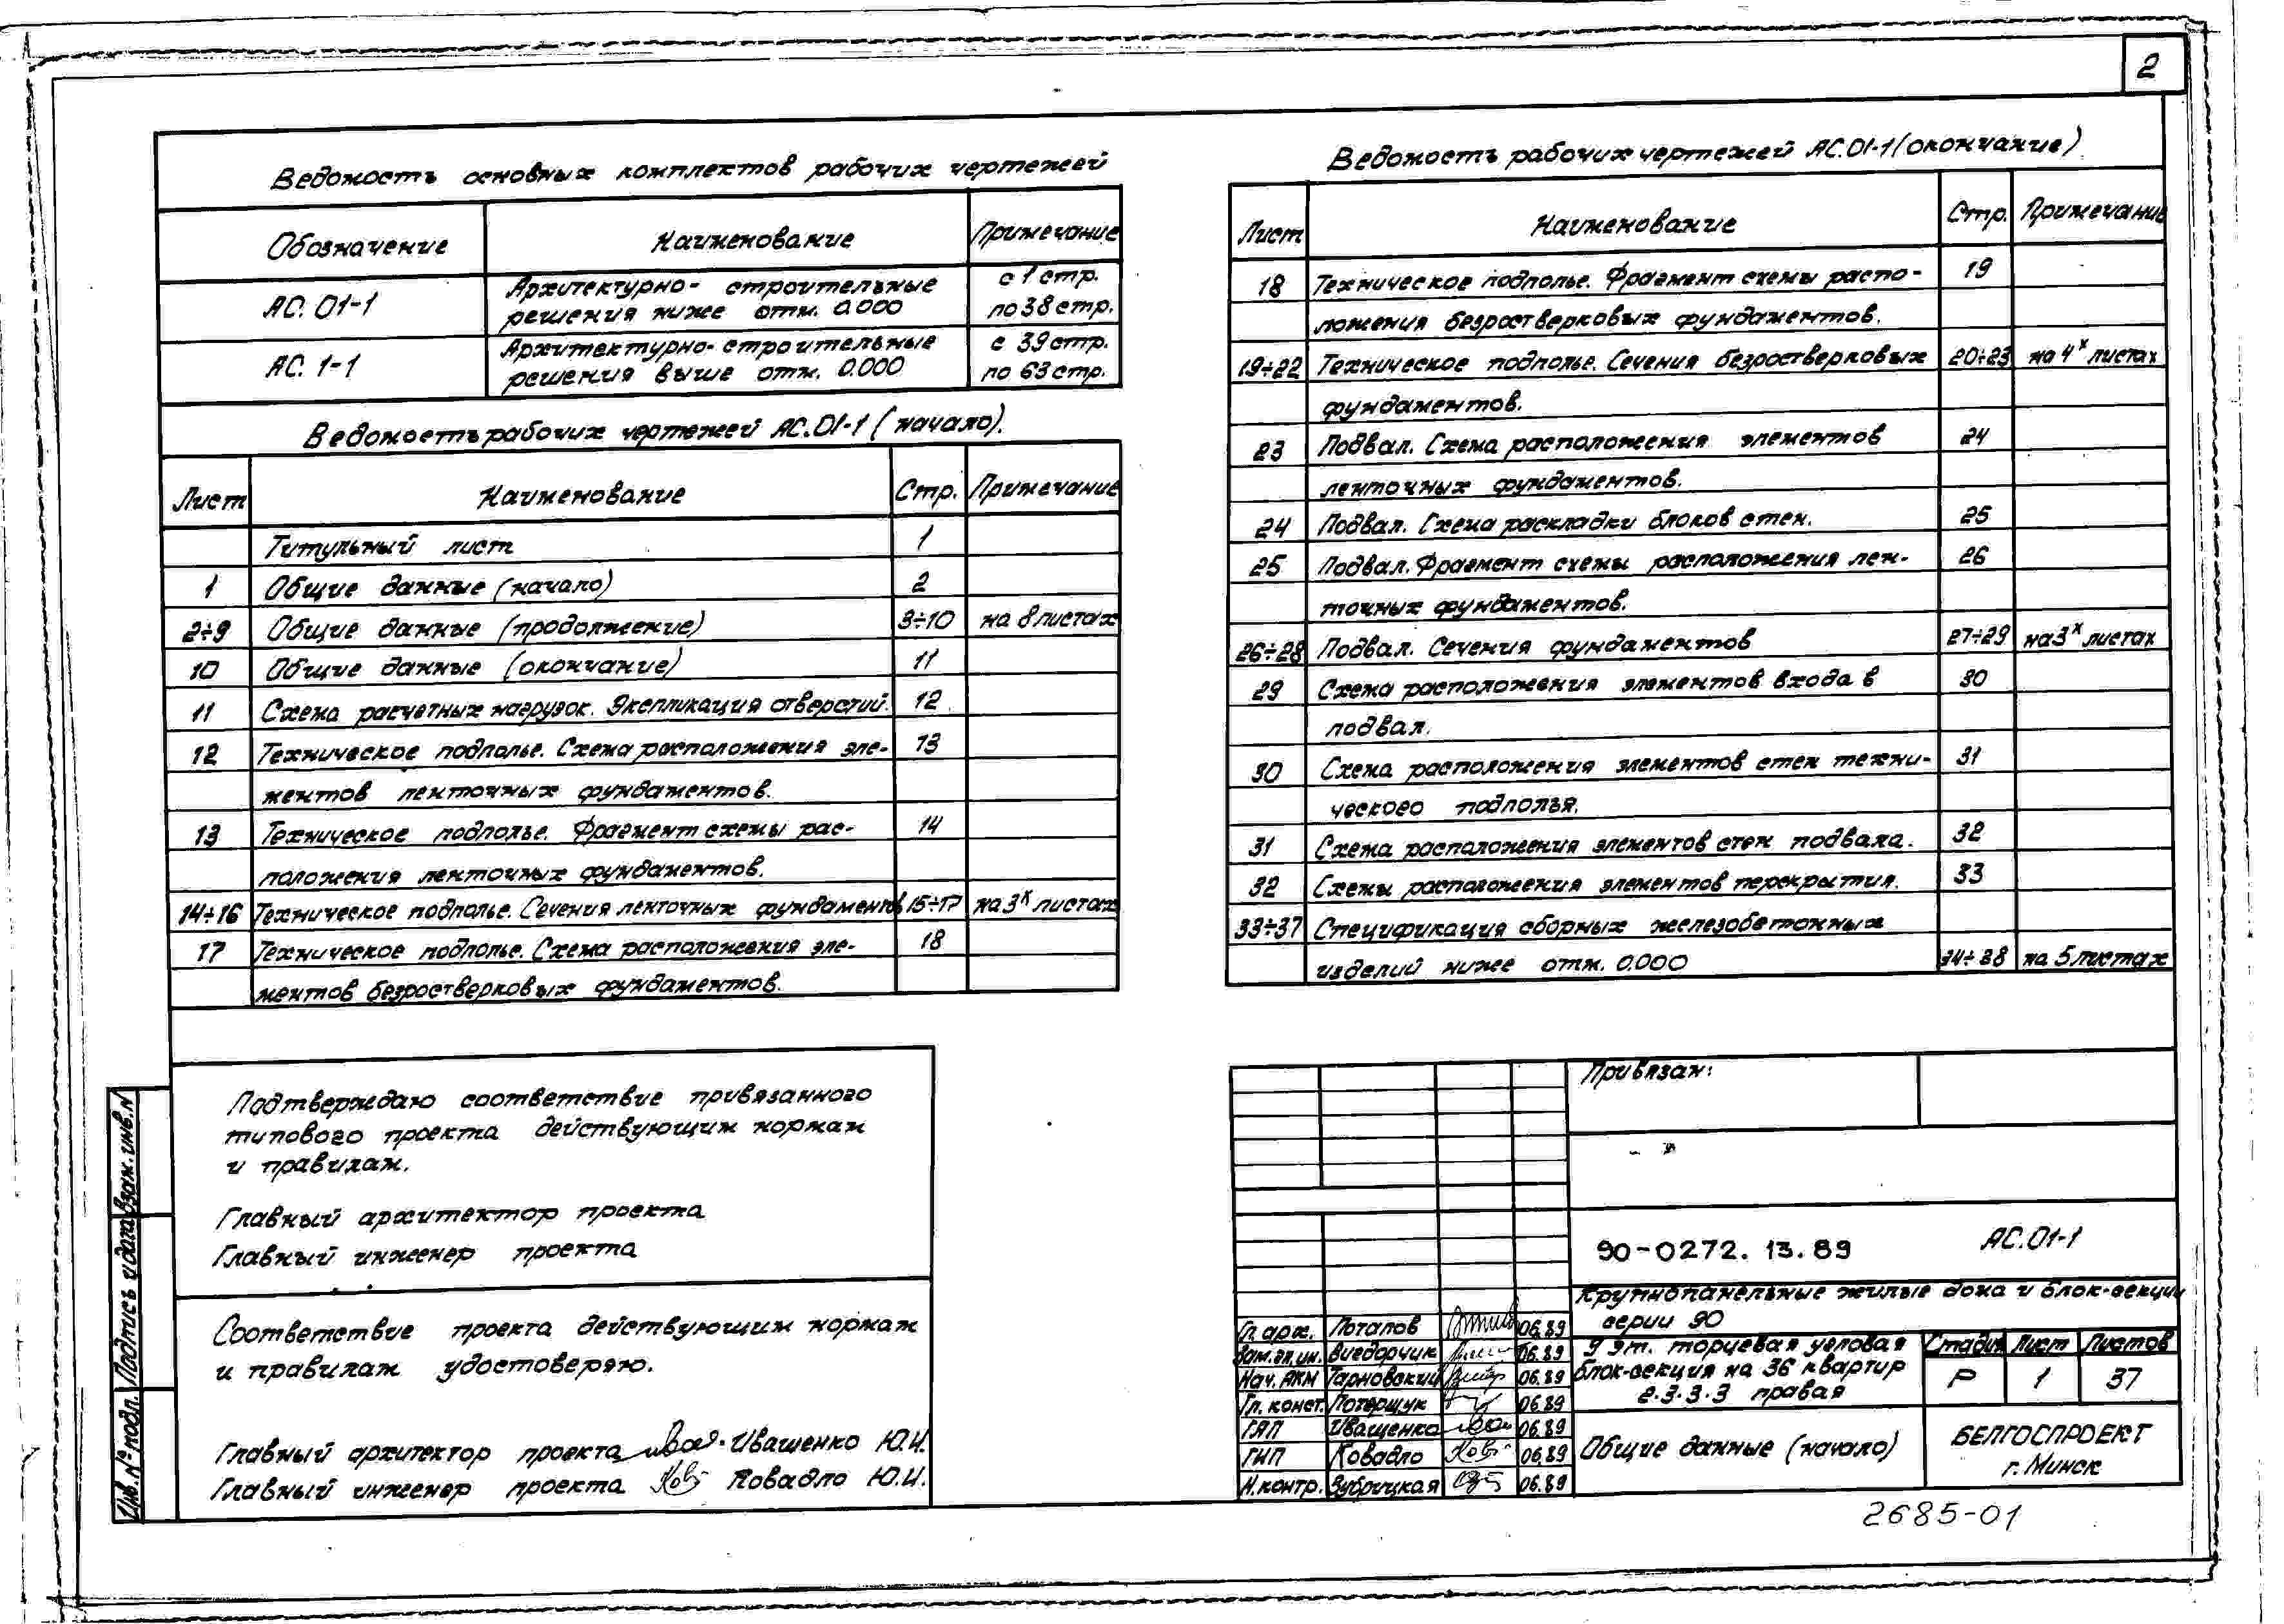 2
Ведомость основных комплектов рабочих чертежей
Обозначение Наименование Примечание
АС. 01-1 Архитектурно- строительные решения ниже отм. 0.000 с 1 стр. по 38 стр.
АС. 1-1 Архитектурно-строительные решения выше отм. 0.000 с 39 стр. по 63 стр.
Ведомость рабочих чертежей АС.01-1 (начало).
Лист Наименование Стр. Примечание
Титульный лист 1
1 Общие данные (начало) 2
2÷9 Общие данные (продолжение) 3÷10 на 8 листах
10 Общие данные (окончание) 11
11 Схема расчетных нагрузок. Экспликация отверстий. 12
12 Техническое подполье. Схема расположения эле- 13
ментов ленточных фундаментов.
13 Техническое подполье. Фрагмент схемы рас- 14
положения ленточных фундаментов.
14÷16 Техническое подполье. Сечения ленточных фундаментов 15÷17 на 3х листах
17 Техническое подполье. Схема расположения эле- 18
ментов безростверковых фундаментов.
Ведомость рабочих чертежей АС.01-1 (окончание)
Лист Наименование Стр. Примечание
18 Техническое подполье. Фрагмент схемы распо- 19
ложения безростверковых фундаментов.
19÷22 Техническое подполье. Сечения безростверковых 20÷23 на 4х листах
фундаментов.
23 Подвал. Схема расположения элементов 24
ленточных фундаментов.
24 Подвал. Схема раскладки блоков стен. 25
25 Подвал. Фрагмент схемы расположения лен- 26
точных фундаментов.
26÷28 Подвал. Сечения фундаментов 27÷29 на 3х листах
29 Схема расположения элементов входа в 30
подвал.
30 Схема расположения элементов стен техни- 31
ческого подполья.
31 Схема расположения элементов стен подвала. 32
32 Схемы расположения элементов перекрытия. 33
33÷37 Спецификация сборных железобетонных
изделий ниже отм. 0.000 34÷38 на 5 листах
Подтверждаю соответствие привязанного
типового проекта действующим нормам
и правилам.
Главный архитектор проекта
Главный инженер проекта
Соответствие проекта действующим нормам
и правилам удостоверяю.
Главный архитектор проекта Иващенко Ю.И.
Главный инженер проекта Ковадло Ю.И.
Инв. № подл. Подпись и дата Взам. инв. N
Привязан:
90-0272. 13. 89 АС.01-1
Крупнопанельные жилые дома и блок-секции
серии 90
Гл. арх. Потапов 06.89
Зам. гл. ин. Вигдорчик 06.89
Нач. АКМ Тарновский 06.89
Гл. конст. Потерщук 06.89
ГАП Иващенко 06.89
ГИП Ковадло 06.89
Н. контр. Зубрицкая 06.89
9 эт. торцевая угловая
блок-секция на 36 квартир
2.3.3.3 правая
Стадия Лист Листов
Р 1 37
Общие данные (начало)
БЕЛГОСПРОЕКТ
г. Минск
2685-01